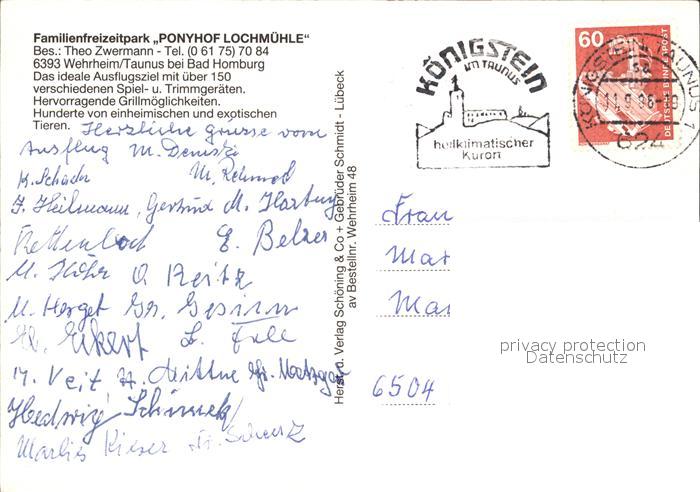 Familienfreizeitpark „PONYHOF LOCHMÜHLE“
Bes.: Theo Zwermann - Tel. (0 61 75) 70 84
6393 Wehrheim/Taunus bei Bad Homburg
Das ideale Ausflugsziel mit über 150
verschiedenen Spiel- u. Trimmgeräten.
Hervorragende Grillmöglichkeiten.
Hunderte von einheimischen und exotischen
Tieren.
Herzliche Grüsse vom
Ausflug M.
K. Schäder
J. Heilmann, Gertrud M. Hartung
Rettenbach E. Belzer
M. Höhr O. Reitz
M. Herget
Eckert L.
M. Veit H.
Hedwig Schimek
Marlies Kieser
Herst. u. Verlag Schöning & Co + Gebrüder Schmidt - Lübeck
av Bestellnr. Wehrheim 48
KÖNIGSTEIN
IM TAUNUS
heilklimatischer
Kurort
60
DEUTSCHE BUNDESPOST
KÖNIGSTEIN
624
Frau
Mar
Mai
6504
privacy protection
Datenschutz